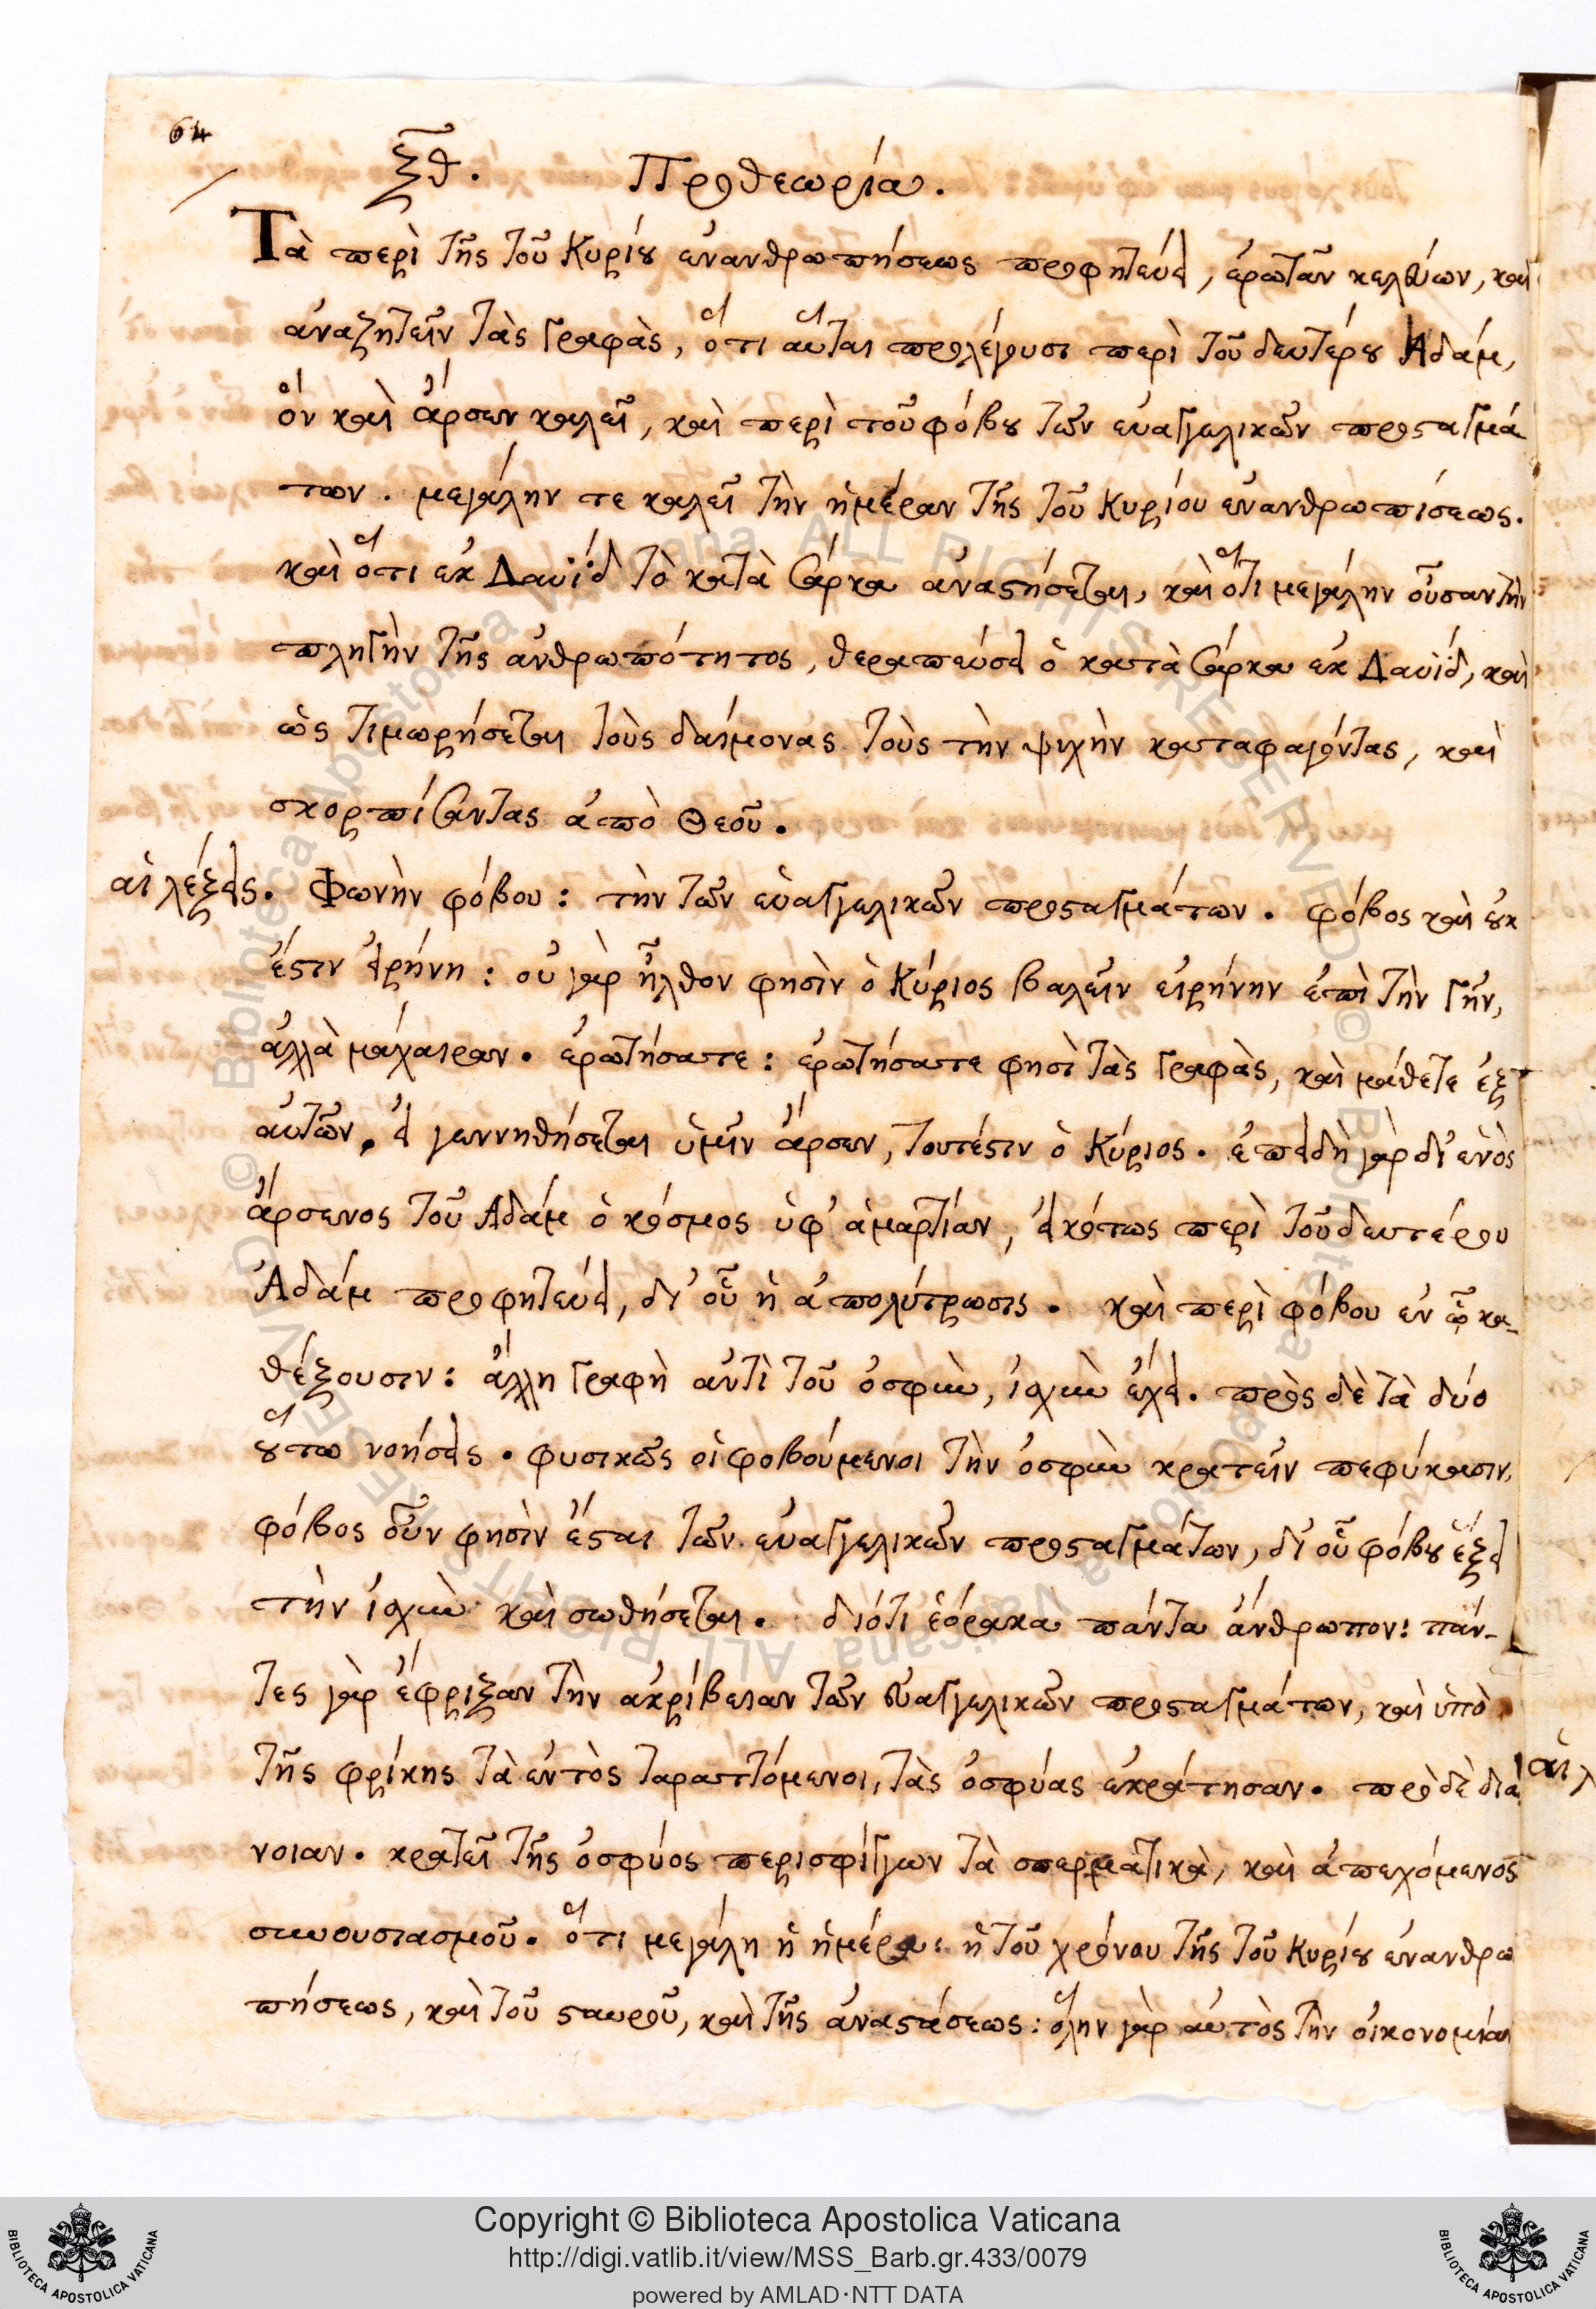 64
ξθ. Προθεωρία.
Τὰ περὶ τῆς τοῦ Κυρίου ἐνανθρωπήσεως προφητεύει, ἐρωτᾶν κελεύων, καὶ
ἀναζητεῖν τὰς γραφὰς, ὅτι αὗται προλέγουσι περὶ τοῦ δευτέρου Ἀδάμ,
ὃν καὶ ἄρσεν καλεῖ, καὶ περὶ τοῦ φόβου τῶν εὐαγγελικῶν προσταγμά
των. μεγάλην τε καλεῖ τὴν ἡμέραν τῆς τοῦ Κυρίου ἐνανθρωπίσεως.
καὶ ὅτι ἐκ Δαυῒδ τὸ κατὰ σάρκα ἀναστήσεται, καὶ ὅτι μεγάλην οὖσαν τὴν
πληγὴν τῆς ἀνθρωπότητος, θεραπεύσει ὁ κατὰ σάρκα ἐκ Δαυῒδ, καὶ
ὡς τιμωρήσεται τοὺς δαίμονας τοὺς τὴν ψυχὴν καταφαγόντας, καὶ
σκορπίσαντας ἀπὸ Θεοῦ.
αἱ λέξεις. Φωνὴν φόβου: τὴν τῶν εὐαγγελικῶν προσταγμάτων. φόβος καὶ οὐκ
ἔστιν εἰρήνη: οὐ γὰρ ἦλθον φησὶν ὁ Κύριος βαλεῖν εἰρήνην ἐπὶ τὴν γῆν,
ἀλλὰ μάχαιραν. ἐρωτήσατε: ἐρωτήσατε φησὶ τὰς γραφὰς, καὶ μάθετε ἐξ
αὐτῶν, εἰ γεννηθήσεται ὑμῖν ἄρσεν, τουτέστιν ὁ Κύριος. ἐπειδὴ γὰρ δι' ἑνὸς
ἄρσενος τοῦ Ἀδάμ ὁ κόσμος ὑφ' ἁμαρτίαν, εἰκότως περὶ τοῦ δευτέρου
Ἀδάμ προφητεύει, δι' οὗ ἡ ἀπολύτρωσις. καὶ περὶ φόβου ἐν ᾧ κα-
θέξουσιν: ἄλλη γραφὴ ἀντὶ τοῦ ὀσφὺν, ἰσχὺν ἔχει. πρὸς δὲ τὰ δύο
οὕτω νοήσεις. φυσικῶς οἱ φοβούμενοι τὴν ὀσφὺν κρατεῖν πεφύκασιν,
φόβος οὖν φησὶν ἔσται τῶν εὐαγγελικῶν προσταγμάτων, δι' οὗ φόβου ἕξει
τὴν ἰσχὺν καὶ σωθήσεται. διότι ἑόρακα πάντα ἄνθρωπον: πάν-
τες γὰρ ἔφριξαν τὴν ἀκρίβειαν τῶν εὐαγγελικῶν προσταγμάτων, καὶ ὑπὸ
τῆς φρίκης τὰ ἐντὸς ταραττόμενοι, τὰς ὀσφύας ἐκράτησαν. πρὸ δὲ διά
νοιαν. κρατεῖ τῆς ὀσφύος περισφίγγων τὰ σπερματικὰ, καὶ ἀπεχόμενος
συνουσιασμοῦ. ὅτι μεγάλη ἡ ἡμέρα: ἡ τοῦ χρόνου τῆς τοῦ Κυρίου ἐνανθρω
πήσεως, καὶ τοῦ σταυροῦ, καὶ τῆς ἀναστάσεως: ὅλην γὰρ αὐτὸς τὴν οἰκονομίαν
Copyright © Biblioteca Apostolica Vaticana
http://digi.vatlib.it/view/MSS_Barb.gr.433/0079
powered by AMLAD·NTT DATA